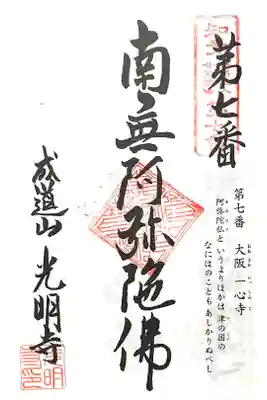 第七番
第七番 大阪 一心寺
阿弥陀仏と いうよりほかは 津の国の
なにはのことも あしかりぬべし
南無阿弥陀佛
成道山 光明寺